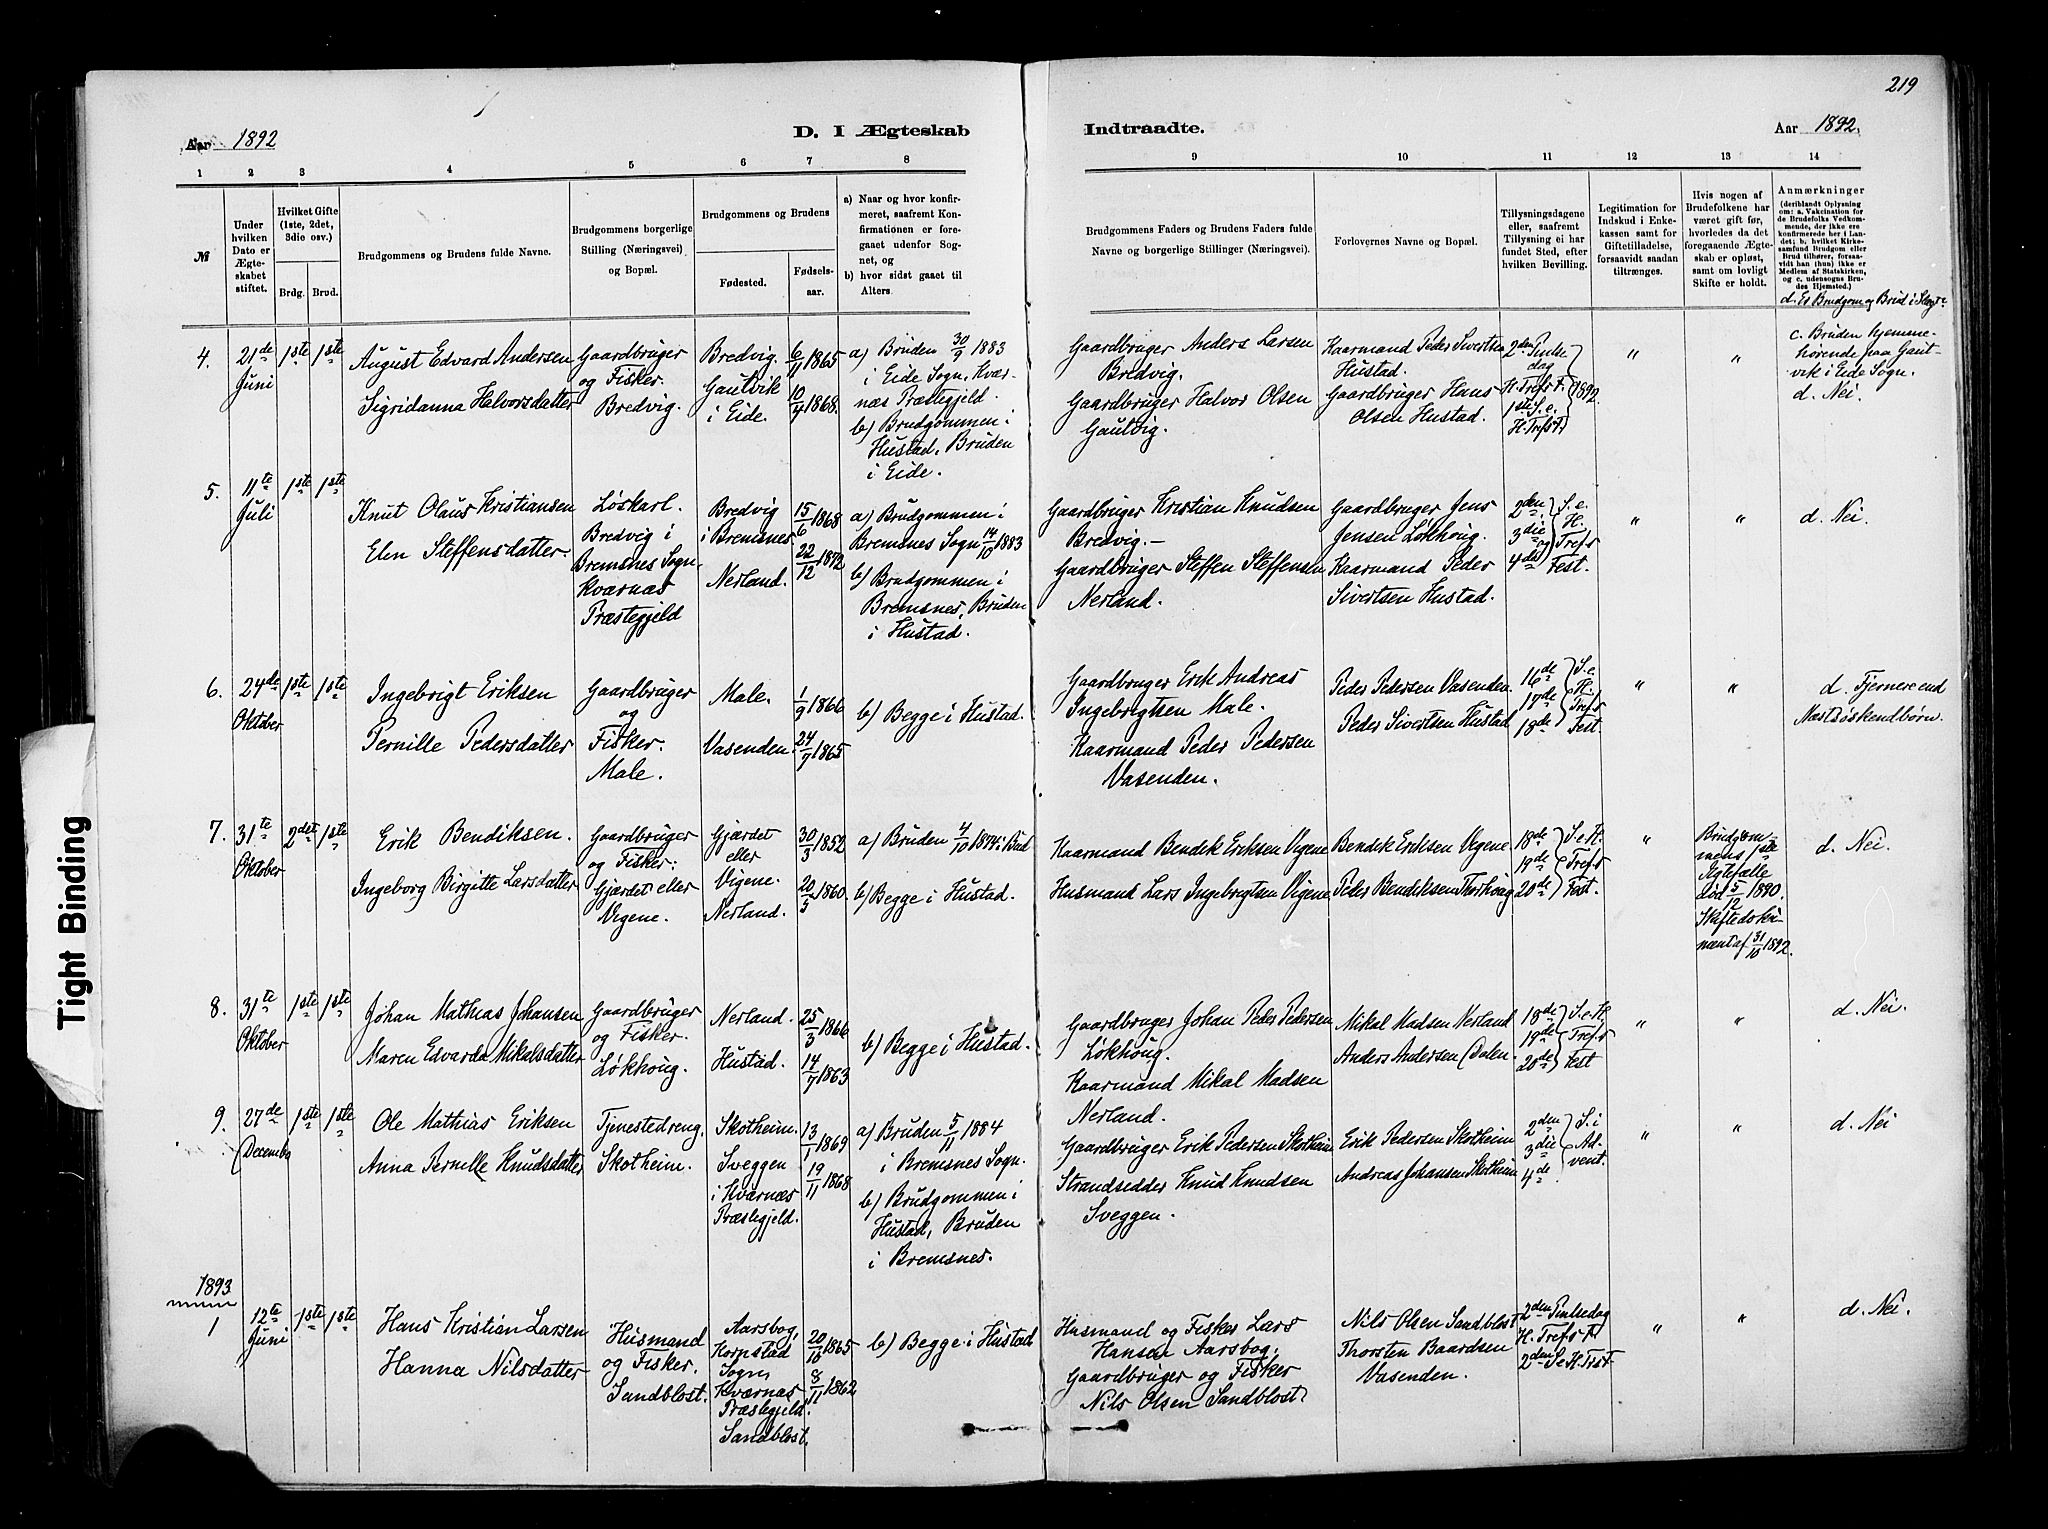 219
Aar 1892
D. I Ægteskab
Indtraadte.
Aar 1892.
1 2 3 4 5 6 7 8 9 10 11 12 13 14
№
Under
hvilken
Dato er
Ægte-
skabet
stiftet.
Hvilket Gifte
(1ste, 2det,
3die osv.)
Brdg. Brud.
Brudgommens og Brudens fulde Navne.
Brudgommens borgerlige
Stilling (Næringsvei)
og Bopæl.
Brudgommens og Brudens
Fødested.
Fødsels-
aar.
a) Naar og hvor konfir-
meret, saafremt Kon-
firmationen er fore-
gaaet udenfor Sog-
net, og
b) hvor sidst gaaet til
Alters.
Brudgommens Faders og Brudens Faders fulde
Navne og borgerlige Stillinger (Næringsvei).
Forlovernes Navne og Bopæl.
Tillysningsdagene
eller, saafremt
Tillysning ei har
fundet Sted, efter
hvilken Bevilling.
Legitimation for
Indskud i Enke-
kassen samt for
Giftetilladelse,
forsaavidt saadan
tiltrænges.
Hvis nogen af
Brudefolkene har
været gift før,
hvorledes da det
foregaaende Ægte-
skab er opløst,
samt om lovligt
Skifte er holdt.
Anmærkninger
(deriblandt Oplysning
om: a. Vakcination for
de Brudefolks Vedkom-
mende, der ikke ere
konfirmerede her i Lan-
det; b. hvilket Kirke-
samfund Brudgom eller
Brud tilhører, forsaa-
vidt han (hun) ikke er
Medlem af Statskirken,
og c. udensogns Bru-
des Hjemsted.)
d. Er Brudgom og Brud i Slægt?
4.
21de
Juni
1ste 1ste
August Edvard Andersen
Sigridanna Halvorsdatter
Gaardbruger
og Fisker.
Bredvig.
Bredvig.
Gautvik
i Eide.
6/11 1865
10/4 1868.
a) Bruden 30/9 1883
i Eide Sogn, Kvær-
næs Præstegjeld.
b) Brudgommen i
Hustad, Bruden
i Eide.
Gaardbruger Anders Larsen
Bredvig.
Gaardbruger Halvor Olsen
Gautvig.
Kaarmand Peder Sivertsen
Hustad.
Gaardbruger Hans
Olsen Hustad.
2den Pintse
dag
H. Tref. st F.
1ste S. e.
H. Tref. st F.
1892
"
"
c. Bruden hjemme-
hørende paa Gaut-
vik i Eide Sogn.
d. Nei.
5.
11te
Juli
1ste 1ste
Knut Olaus Kristiansen
Elen Steffensdatter.
Løskarl.
Bredvig i
Bremsnes Sogn,
Kværnæs
Præstegjeld
Bredvig
i Bremsnes
Nerland.
15/6 1868
22/12 1872
a) Brudgommen i
Bremsnes Sogn 14/10 1883
b) Brudgommen i
Bremsnes, Bruden
i Hustad.
Gaardbruger Kristian Knudsen
Bredvig.
Gaardbruger Steffen Steffensen
Nerland.
Gaardbruger Jens
Jensen Løkhoug.
Kaarmand Peder
Sivertsen Hustad.
2den
3die og
4de
S. e.
H.
Tref.s
Fest.
"
"
d. Nei.
6.
24de
Oktober
1ste 1ste
Ingebrigt Eriksen
Pernille Pedersdatter
Gaardbruger
og
Fisker.
Male.
Male.
Vasenden.
1/9 1866
24/7 1865
b) Begge i Hustad.
Gaardbruger Erik Andreas
Ingebrigtsen Male.
Kaarmand Peder Pedersen
Vasenden.
Peder Pedersen Vasenden.
Peder Sivertsen Hustad
16de
17de
18de
S. e.
H.
Tref.s
Fest.
"
"
d. Fjernere end
Næstsøskendbørn.
7.
31te
Oktober
2det 1ste
Erik Bendiksen.
Ingeborg Birgitte Larsdatter
Gaardbruger
og Fisker.
Gjærdet eller
Vigene.
Gjærdet
eller
Vigene.
Nerland.
30/3 1852
20/3 1860.
a) Bruden 4/10 1874 i Bud
b) Begge i Hustad.
Kaarmand Bendik Eriksen Vigene
Husmand Lars Ingebrigtsen Vigene
Bendik Eriksen Vigene
Peder Bendiksen Thorhoug
18de
19de
20de
S. e. H.
Tref.s
Fest.
"
Brudgom-
mens 1ste
Ægtefælle
død 5/12 1890.
Skiftedoku-
ment af 31/10 1892.
d. Nei.
8.
31te
Oktober
1ste 1ste
Johan Mathias Johansen
Maren Edvarda Mikalsdatter
Gaardbruger
og Fisker.
Løkhoug.
Nerland.
Hustad.
25/3 1866
14/7 1863
b) Begge i Hustad.
Gaardbruger Johan Peder Pedersen
Løkhoug.
Kaarmand Mikal Madsen
Nerland.
Mikal Madsen Nerland
Anders Andersen Dalen.
18de
19de
20de
S. e. H.
Tref.s
Fest
"
"
d. Nei.
9.
27de
Decembr
1ste 1ste
Ole Mathias Eriksen
Anna Pernille Knudsdatter
Tjenestedreng.
Skotheim.
Skotheim.
Sveggen
i Kværnæs
Præstegjeld.
13/1 1869
19/11 1868
a) Bruden 5/11 1884
i Bremsnes Sogn.
b) Brudgommen i
Hustad, Bruden
i Bremsnes.
Gaardbruger Erik Pedersen Skotheim
Strandsidder Knud Knudsen
Sveggen.
Erik Pedersen Skotheim
Andreas Johansen Skotheim
2den
3die
4de
S. i
Ad-
vent.
"
"
d. Nei
1893
1
12te
Juni
1ste 1ste
Hans Kristian Larsen
Hanna Nilsdatter
Husmand
og Fisker.
Sandblost.
Aarsbog,
Kornstad
Sogn,
Kværnæs
Præstegjeld.
Sandblost.
20/10 1865
8/11 1862
b) Begge i Hustad
Husmand og Fisker Lars
Hansen Aarsbog.
Gaardbruger og Fisker
Nils Olsen Sandblost.
Nils Olsen Sandblost
Thorsten Baardsen
Vasenden.
2den Pintsedag
H. Tref.s F.
2den S. e H. Trst
"
"
d. Nei.
Tight Binding